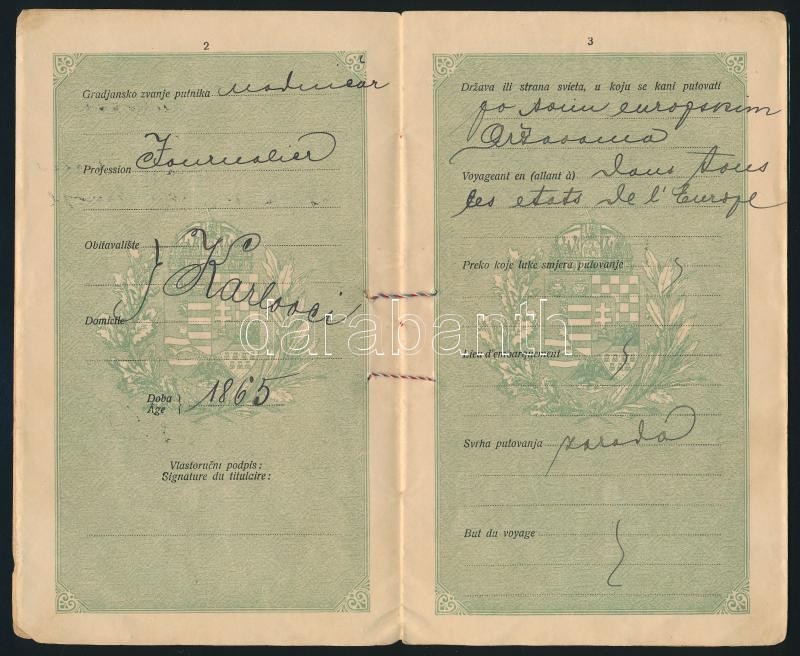 2
Gradjansko zvanje putnika nadničar
Profession Journalier
Obitavalište
Karlovci
Domicile
Doba
Age } 1865
Vlastoručni podpis:
Signature du titulcire:
3
Država ili strana svieta, u koju se kani putovati
po svim europskim
državama
Voyageant en (allant à) dans tous
les etats de l'Europe
Preko koje luke smjera putovanje
Lieu d'embarquement
Svrha putovanja zarada
But du voyage
darabanth